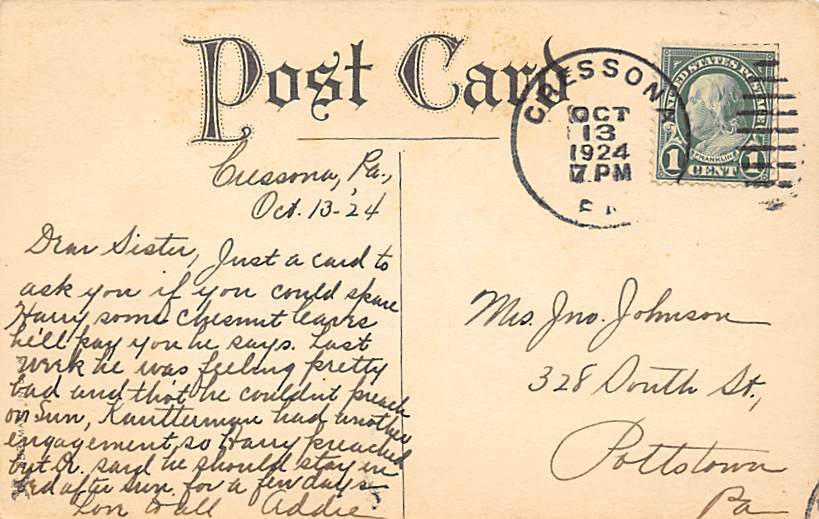 Post Card
CRESSONA
OCT
13
1924
7 PM
UNITED STATES POSTAGE
FRANKLIN
1 CENT 1
Cressona, Pa.,
Oct. 13-24
Dear Sister, Just a card to
ask you if you could spare
Harry some Chesnut leaves
he'll pay you he says. Last
week he was feeling pretty
bad and tho't he couldn't preach
on Sun, Kantterman had another
engagement, so Harry preached
but Dr. said he should stay in
bed after Sun. for a few days
Lov to all Addie
Mrs. Jno. Johnson
328 South St.,
Pottstown
Pa